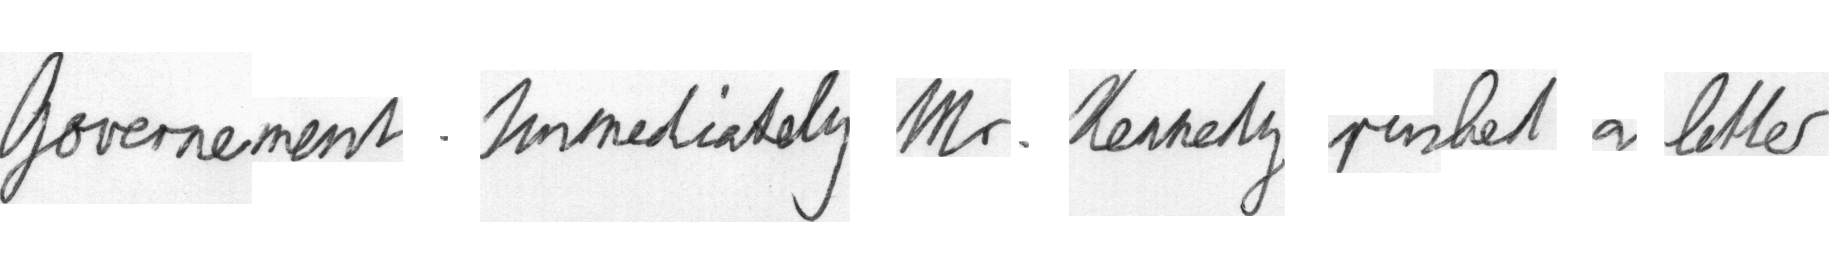 Governement . Immediately Mr. Kennedy rushed a letter